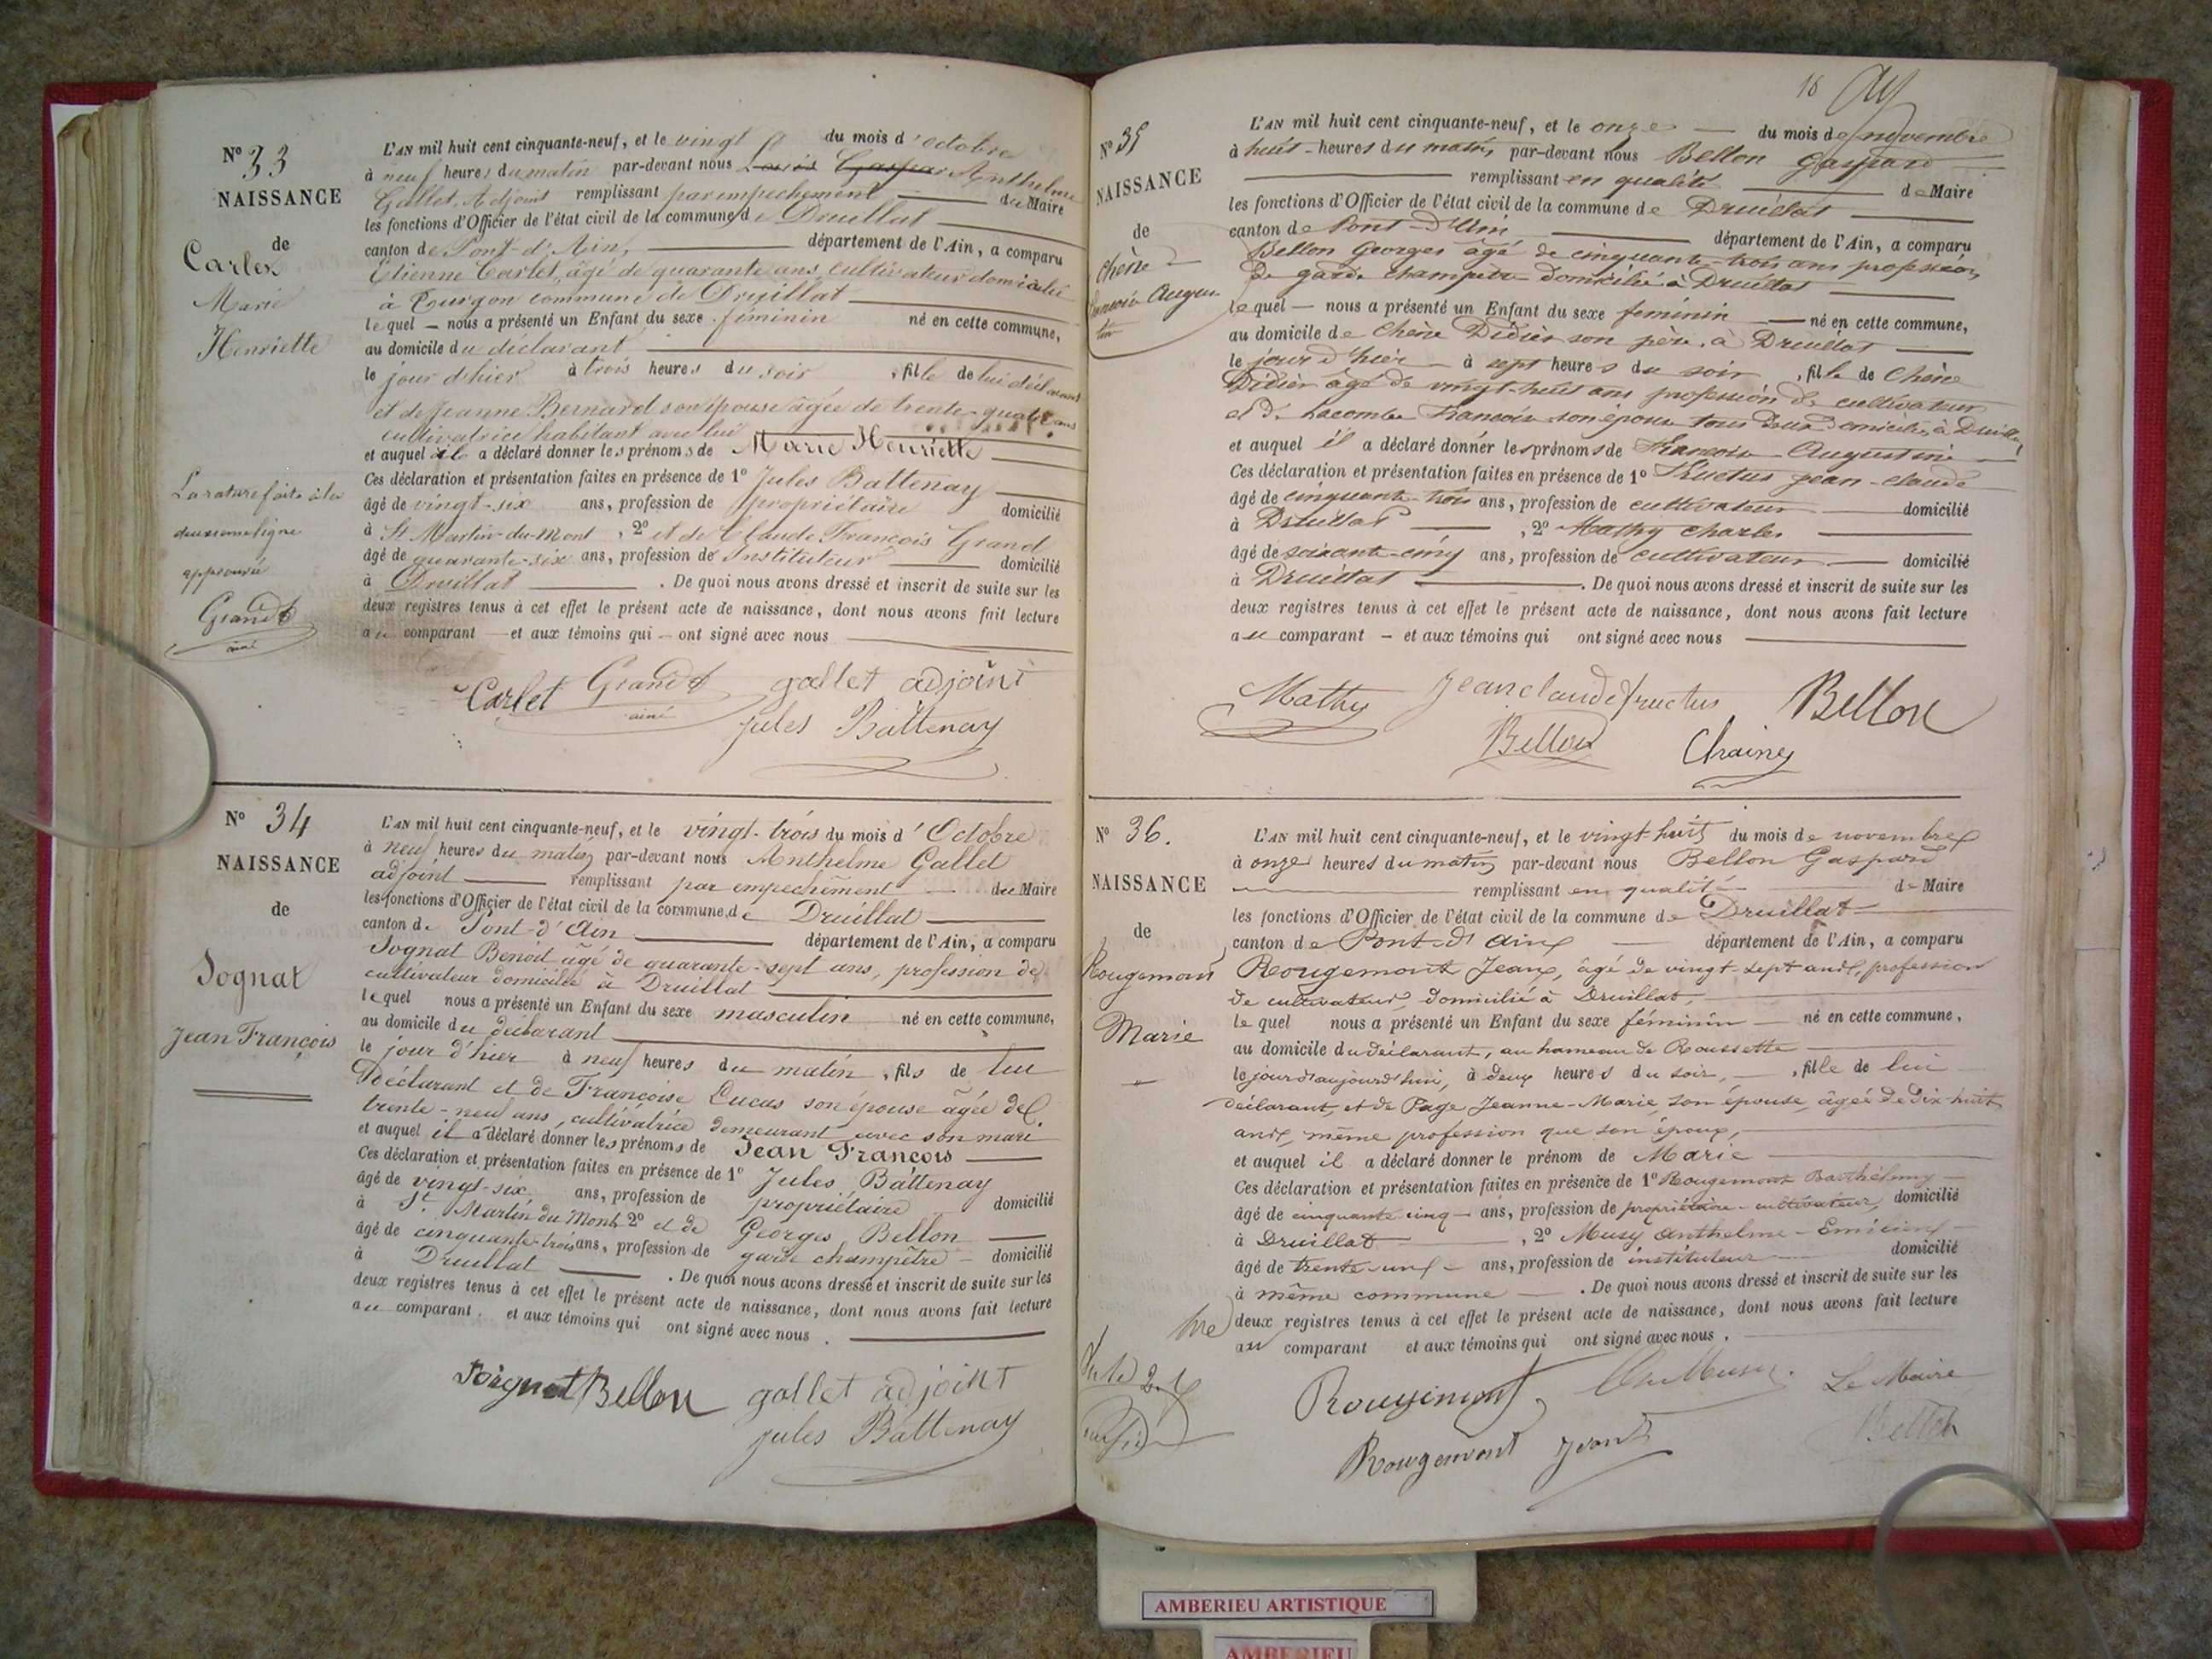 N° 33
NAISSANCE
de
Carlet
Marie
Henriette
La rature faite à la
deuxième ligne
approuvée
Grand
ainé
L'AN mil huit cent cinquante-neuf, et le vingt du mois d'octobre
à neuf heures du matin par-devant nous Louis Gaspar Anthelme
Gallet, Adjoint remplissant par empechement du Maire
les fonctions d'Officier de l'état civil de la commune de Druillat
canton de Pont-d'Ain, département de l'Ain, a comparu
Etienne Carlet, âgé de quarante ans, cultivateur domicilié
à Tourgon commune de Druillat
lequel nous a présenté un Enfant du sexe féminin né en cette commune,
au domicile du déclarant
le jour d'hier à trois heures du soir, fille de lui déclarant
et de Jeanne Bernard son épouse âgée de trente-quatre ans
cultivatrice habitant avec lui
et auquel il a déclaré donner les prénoms de Marie Henriette
Ces déclaration et présentation faites en présence de 1° Jules Battenay
âgé de vingt-six ans, profession de propriétaire domicilié
à St Martin-du-Mont, 2° et de Claude François Grand
âgé de quarante-six ans, profession de Instituteur domicilié
à Druillat. De quoi nous avons dressé et inscrit de suite sur les
deux registres tenus à cet effet le présent acte de naissance, dont nous avons fait lecture
au comparant et aux témoins qui ont signé avec nous
Carlet Grand gallet adjoint
ainé jules Battenay
N° 34
NAISSANCE
de
Sognat
Jean François
L'AN mil huit cent cinquante-neuf, et le vingt-trois du mois d'Octobre
à neuf heures du matin par-devant nous Anthelme Gallet
adjoint remplissant par empechement du Maire
les fonctions d'Officier de l'état civil de la commune de Druillat
canton de Pont-d'Ain département de l'Ain, a comparu
Sognat Benoit âgé de quarante-sept ans, profession de
cultivateur domicilié à Druillat
lequel nous a présenté un Enfant du sexe masculin né en cette commune,
au domicile du déclarant
le jour d'hier à neuf heures du matin, fils de lui
Déclarant et de Françoise Lucas son épouse âgée de
trente-neuf ans, cultivatrice demeurant avec son mari
et auquel il a déclaré donner les prénoms de Jean François
Ces déclaration et présentation faites en présence de 1° Jules Battenay
âgé de vingt-six ans, profession de propriétaire domicilié
à St Martin du Mont 2° et de Georges Bellon
âgé de cinquante-trois ans, profession de garde champêtre domicilié
à Druillat. De quoi nous avons dressé et inscrit de suite sur les
deux registres tenus à cet effet le présent acte de naissance, dont nous avons fait lecture
au comparant, et aux témoins qui ont signé avec nous.
Sognat Bellon gallet adjoint
jules Battenay
18
N° 35
NAISSANCE
de
Chêne
L'AN mil huit cent cinquante-neuf, et le onze du mois de novembre
à huit heures du matin, par-devant nous Bellon Gaspard
remplissant en qualité de Maire
les fonctions d'Officier de l'état civil de la commune de Druillat
canton de Pont-d'Ain département de l'Ain, a comparu
Bellon Georges âgé de cinquante-trois ans profession
de garde champêtre domicilié à Druillat
lequel nous a présenté un Enfant du sexe feminin né en cette commune,
au domicile de Chêne Didier son père, à Druillat
le jour d'hier à sept heures du soir, fille de Chêne
Didier âgé de vingt-huit ans profession de cultivateur
et de Lacombe Francoise son épouse tous deux domiciliés à Druillat
et auquel il a déclaré donner les prénoms de Francoise Augustine
Ces déclaration et présentation faites en présence de 1° Fructus jean-claude
âgé de cinquante-trois ans, profession de cultivateur domicilié
à Druillat, 2° Mathy charles
âgé de soixante-cinq ans, profession de cultivateur domicilié
à Druillat. De quoi nous avons dressé et inscrit de suite sur les
deux registres tenus à cet effet le présent acte de naissance, dont nous avons fait lecture
au comparant et aux témoins qui ont signé avec nous
Mathy jean claude fructus Bellon
Bellon Chainey
N° 36.
NAISSANCE
de
Rougemont
Marie
L'AN mil huit cent cinquante-neuf, et le vingt huit du mois de novembre
à onze heures du matin par-devant nous Bellon Gaspard
remplissant en qualité de Maire
les fonctions d'Officier de l'état civil de la commune de Druillat
canton de Pont-d'ain département de l'Ain, a comparu
Rougemont Jean, âgé de vingt-sept ans, profession
de cultivateur, domicilié à Druillat,
lequel nous a présenté un Enfant du sexe féminin né en cette commune,
au domicile du déclarant, au hameau de Roussette
le jour d'aujourd'hui, à deux heures du soir, fille de lui
déclarant, et de Page Jeanne-Marie, son épouse, âgée de dix-huit
ans, même profession que son époux,
et auquel il a déclaré donner le prénom de Marie
Ces déclaration et présentation faites en présence de 1° Rougemont Barthélemy
âgé de cinquante-cinq ans, profession de propriétaire-cultivateur, domicilié
à Druillat, 2° Musy Anthelme-Emilien
âgé de trente-un ans, profession de instituteur domicilié
à même commune. De quoi nous avons dressé et inscrit de suite sur les
deux registres tenus à cet effet le présent acte de naissance, dont nous avons fait lecture
au comparant et aux témoins qui ont signé avec nous.
Rougemont Musy. Le Maire
Rougemont jean Bellon
AMBERIEU ARTISTIQUE
AMBERIEU